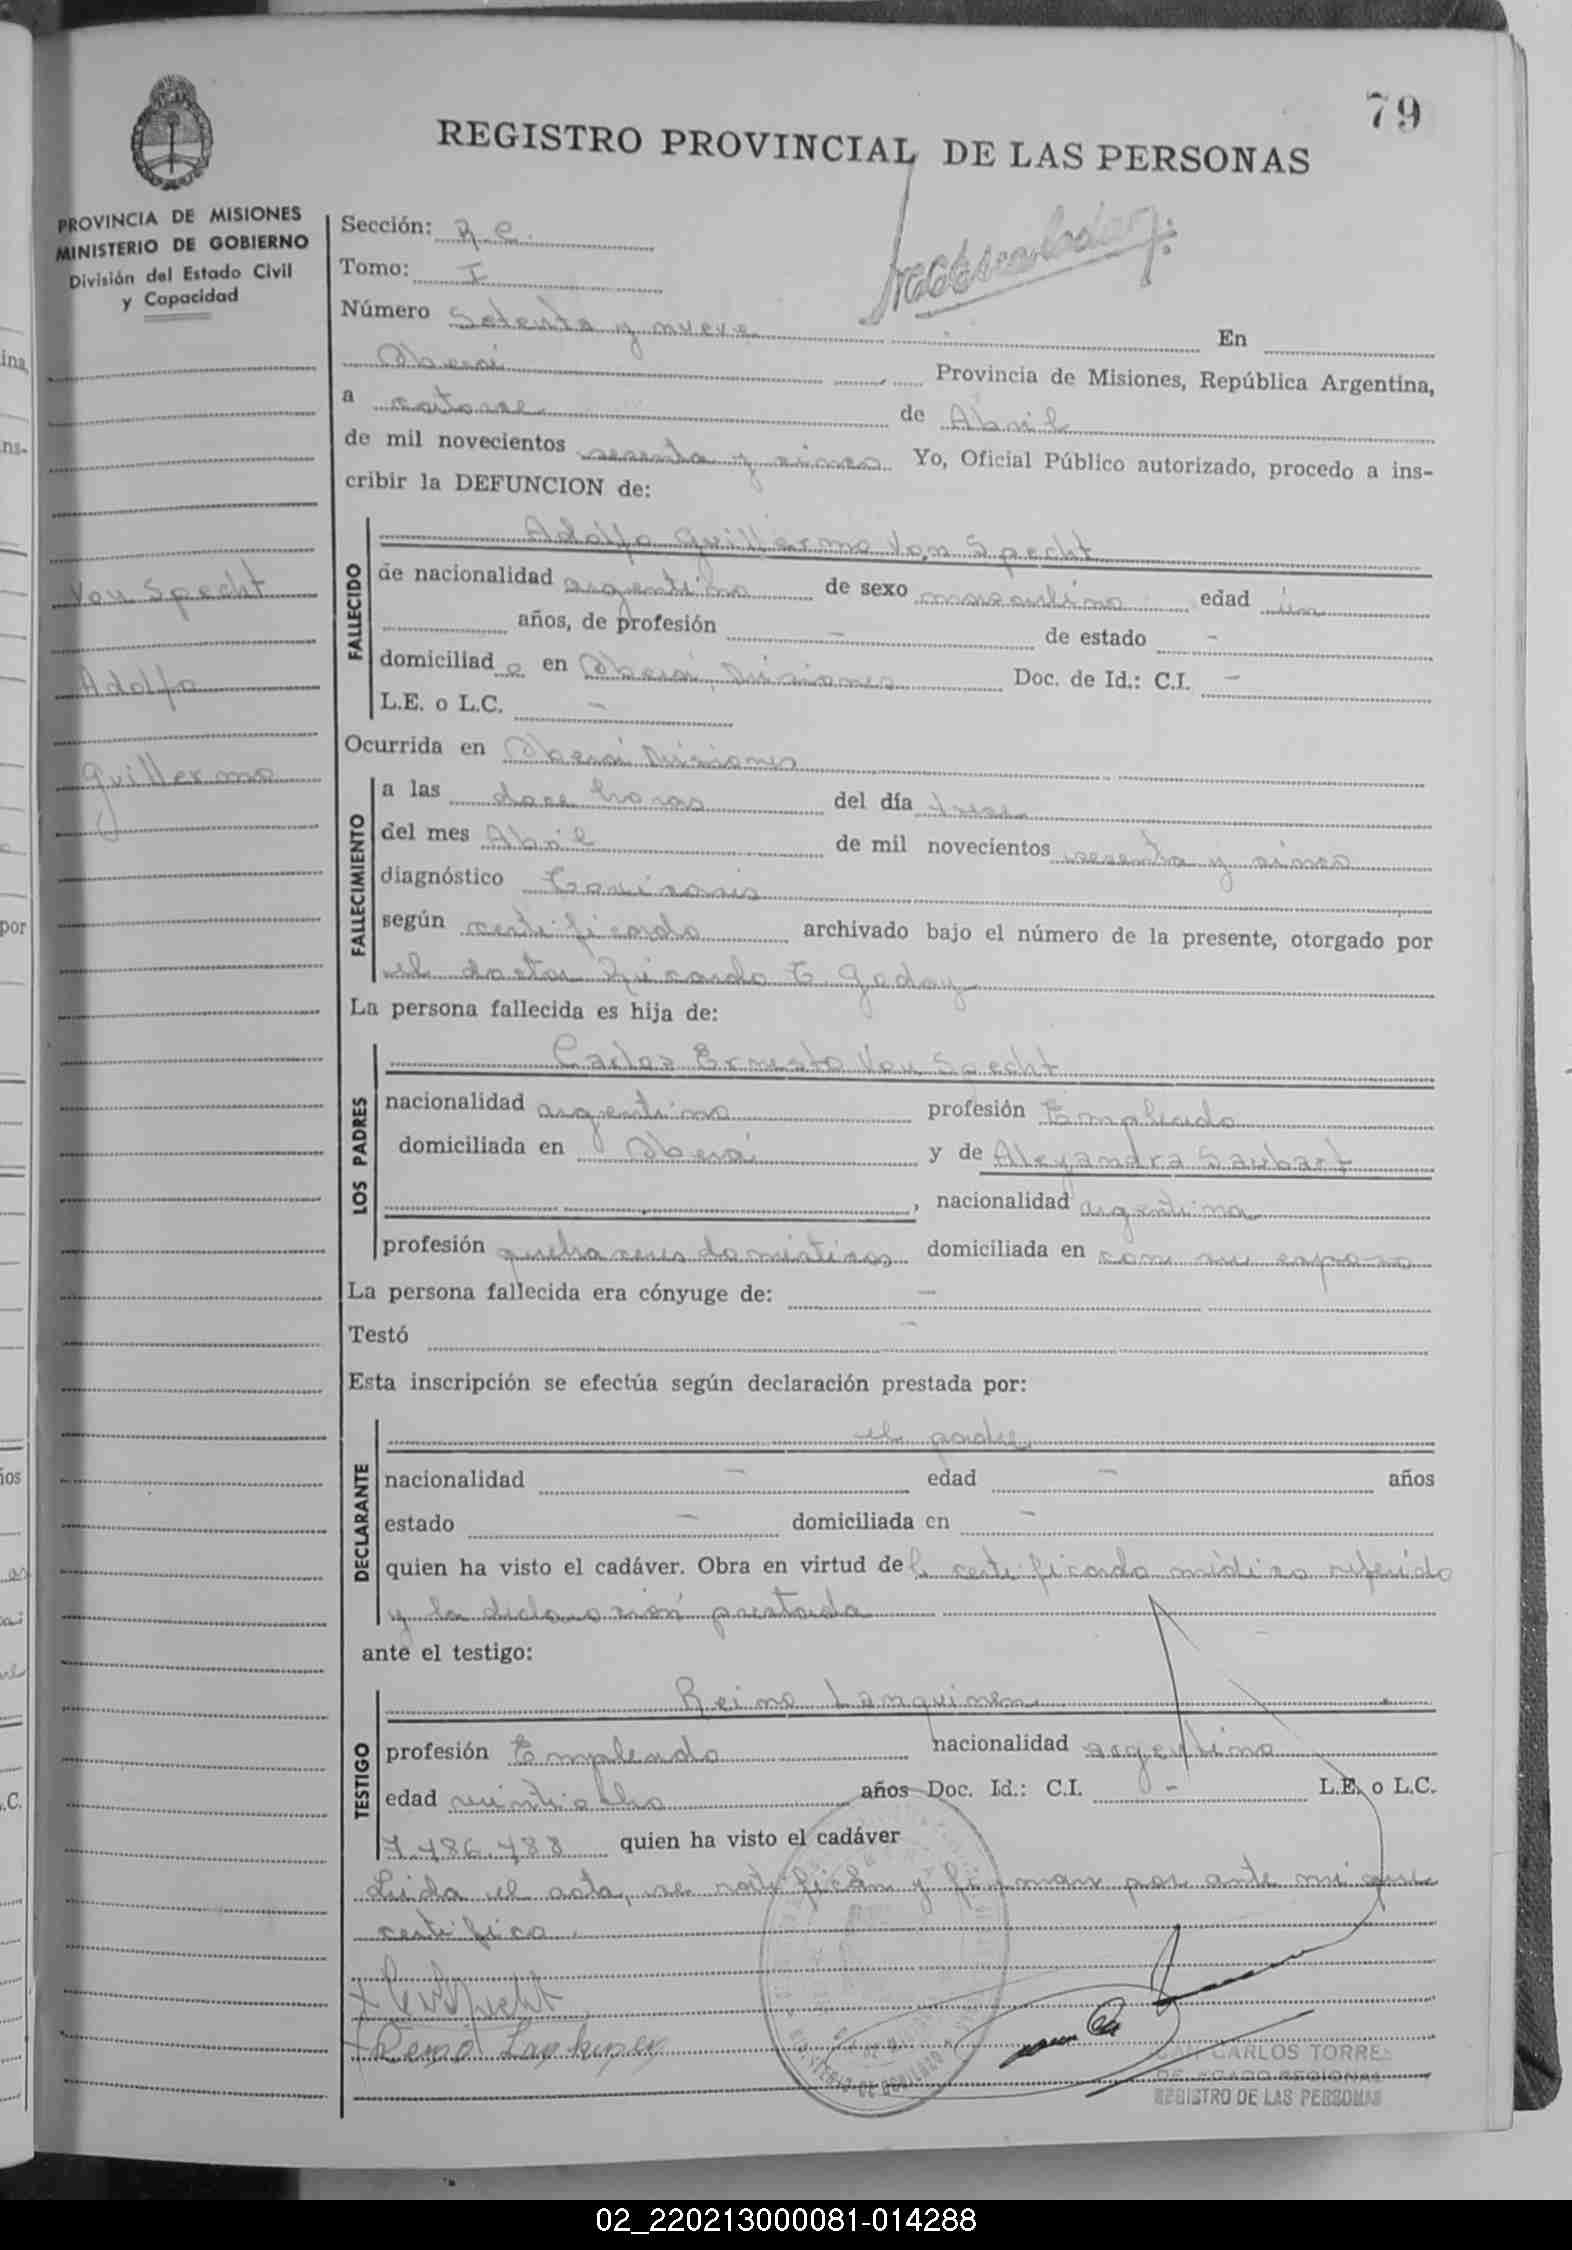 79
REGISTRO PROVINCIAL DE LAS PERSONAS
PROVINCIA DE MISIONES
MINISTERIO DE GOBIERNO
División del Estado Civil
y Capacidad
Von Specht
Adolfo
Guillermo
Sección: R C.
Tomo: I
Número Setenta y nueve En
Oberá Provincia de Misiones, República Argentina,
a catorce de Abril
de mil novecientos sesenta y cinco Yo, Oficial Público autorizado, procedo a ins-
cribir la DEFUNCION de:
FALLECIDO
Adolfo Guillermo Von Specht
de nacionalidad argentina de sexo masculino edad un
años, de profesión - de estado -
domiciliad o en Oberá, Misiones Doc. de Id.: C.I. -
L.E. o L.C. -
Ocurrida en Oberá Misiones
FALLECIMIENTO
a las doce horas del día trece
del mes Abril de mil novecientos sesenta y cinco
diagnóstico
según certificado archivado bajo el número de la presente, otorgado por
el doctor Ricardo E. Godoy
La persona fallecida es hija de:
LOS PADRES
Carlos Ernesto Von Specht
nacionalidad argentino profesión Empleado
domiciliada en Oberá y de Alejandra
, nacionalidad argentina
profesión quehaceres domésticos domiciliada en con su esposo
La persona fallecida era cónyuge de: -
Testó -
Esta inscripción se efectúa según declaración prestada por:
DECLARANTE
el padre
nacionalidad - edad - años
estado - domiciliada en -
quien ha visto el cadáver. Obra en virtud de certificado médico referido
y la declaración prestada
ante el testigo:
TESTIGO
Reino
profesión Empleado nacionalidad argentino
edad veintiocho años Doc. Id.: C.I. - L.E. o L.C.
7.486.788 quien ha visto el cadáver
Leida el acta, se ratifican y firman por ante mi que
certifico.
CARLOS TORRES
REGISTRO DE LAS PERSONAS
02_220213000081-014288